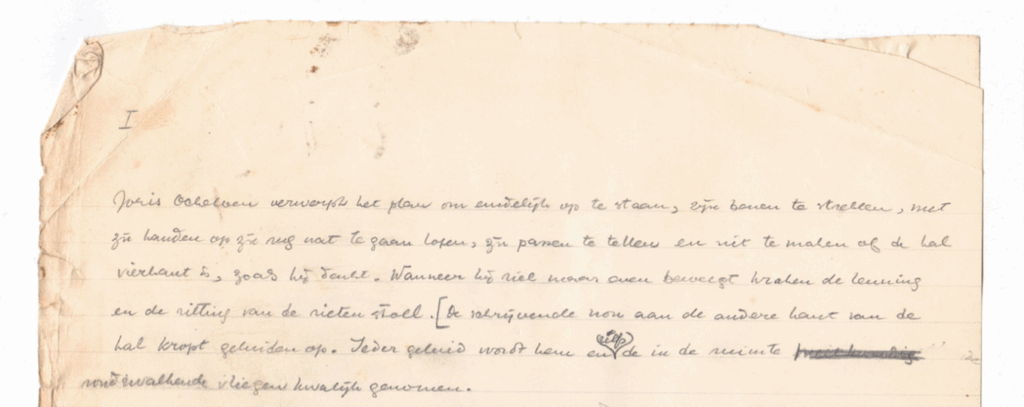 I
Joris Ockeloen verwerpt het plan om eindelijk op te staan, zijn benen te strekken, met
zijn handen op zijn rug wat te gaan lopen, zijn passen te tellen en uit te maken of de hal
vierkant is, zoals hij denkt. Wanneer hij zich maar even beweegt kraken de leuning
en de zitting van de rieten stoel. [De schrijvende non aan de andere kant van de
hal kropt geluiden op. Ieder geluid wordt hem en de in de ruimte
rondzwalkende vliegen kwalijk genomen.